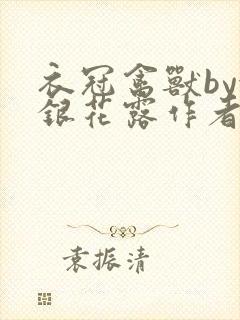 衣冠禽獸by
銀花露作者
袁振清